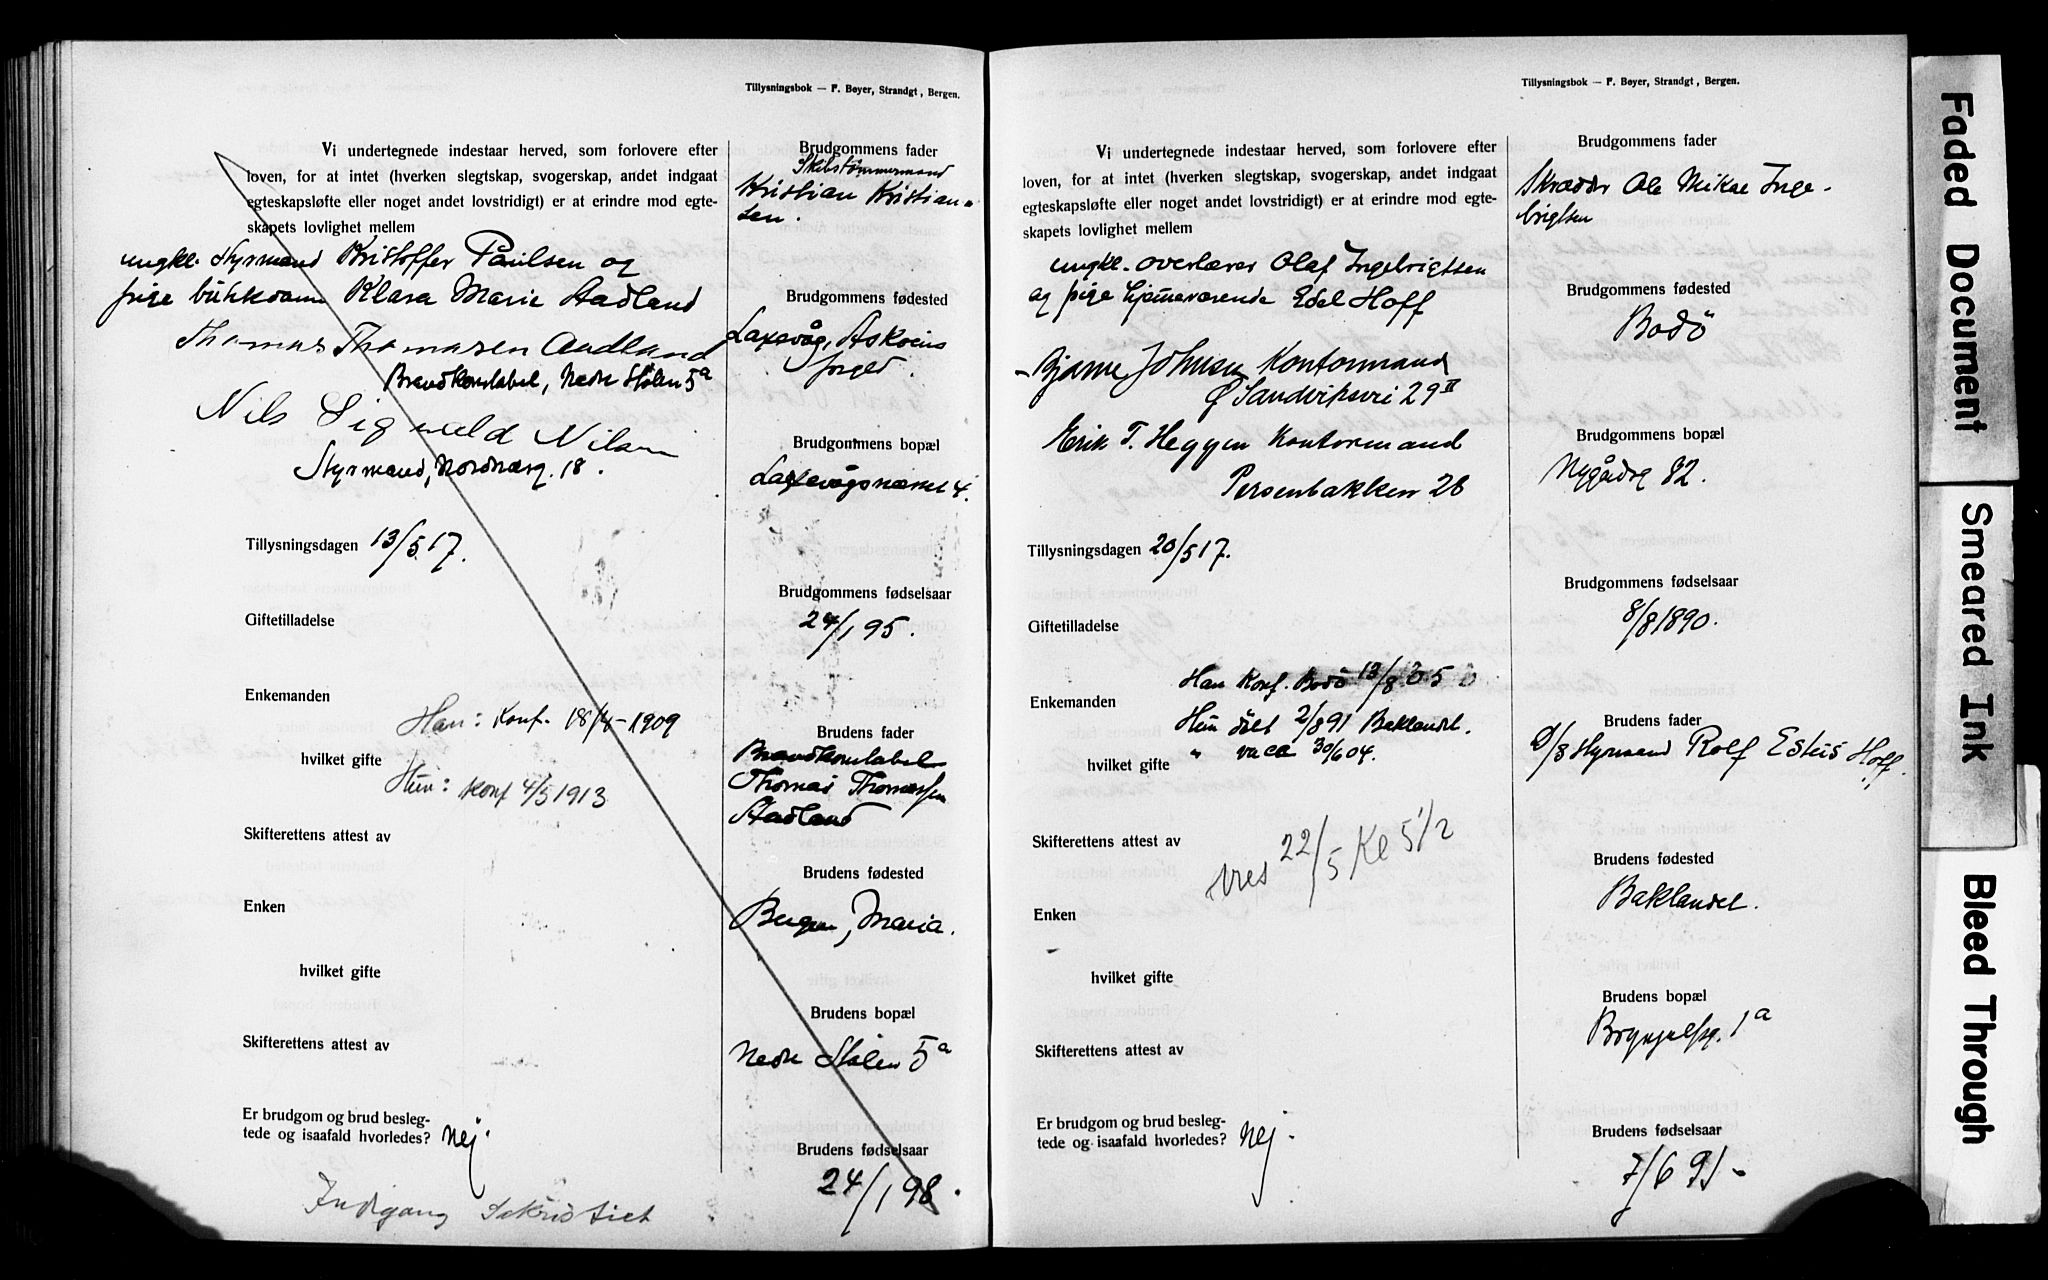 Tillysningsbok — F. Bøyer, Strandgt, Bergen.
Vi undertegnede indestaar herved, som forlovere efter
loven, for at intet (hverken slegtskap, svogerskap, andet indgaat
egteskapsløfte eller noget andet lovstridigt) er at erindre mod egte-
skapets lovlighet mellem
ungkl. Styrmand Kristoffer Paulsen og
pige Klara Marie Aadland
Thomas Thomasen Aadland
Brandkonstabel, Nedre Stölen 5a
Nils Sigvald Nilsen
Styrmand, Nordnæsg. 18.
Tillysningsdagen 13/5 17.
Giftetilladelse
Enkemanden
Han: Konf. 18/4-1909
hvilket gifte
Hun: Konf 4/5 1913
Skifterettens attest av
Enken
hvilket gifte
Skifterettens attest av
Er brudgom og brud besleg-
tede og isaafald hvorledes? Nej.
Indgang Sakristiet
Brudgommens fader
Skibstømmermand
Kristian Kristian-
sen.
Brudgommens fødested
Laxevåg, Askøens
Brudgommens bopæl
Laxevågsneset 4.
Brudgommens fødselsaar
24/1 95.
Brudens fader
Brandkonstabel
Thomas Thomassen
Aadland
Brudens fødested
Bergen, Maria.
Brudens bopæl
Nedre Stölen 5a
Brudens fødselsaar
24/1 98.
Tillysningsbok — F. Bøyer, Strandgt, Bergen.
Vi undertegnede indestaar herved, som forlovere efter
loven, for at intet (hverken slegtskap, svogerskap, andet indgaat
egteskapsløfte eller noget andet lovstridigt) er at erindre mod egte-
skapets lovlighet mellem
ungkl. overlærer Olaf Ingebrigtsen
og pige hjemmeværende Edel Hoff
Bjarne Johnsen Kontormand
Ø Sandviksvei 29 II
Erik T. Heggen Kontormand
Persenbakken 28
Tillysningsdagen 20/5 17.
Giftetilladelse
Enkemanden
Han Konf. Bodö 13/8 05
Hun döbt 2/8 91 Baklandet.
" vacc 30/6 04.
hvilket gifte
Skifterettens attest av
22/5 Kl 5 1/2
Enken
hvilket gifte
Skifterettens attest av
Er brudgom og brud besleg-
tede og isaafald hvorledes? Nej.
Brudgommens fader
Skrædder Ole Mikae Inge-
brigtsen
Brudgommens fødested
Bodö
Brudgommens bopæl
Nygårdsg 82.
Brudgommens fødselsaar
8/8 1890.
Brudens fader
Styrmand Rolf Hoff.
Brudens fødested
Baklandet.
Brudens bopæl
1a
Brudens fødselsaar
7/6 91-
Faded Document
Smeared Ink
Bleed Through